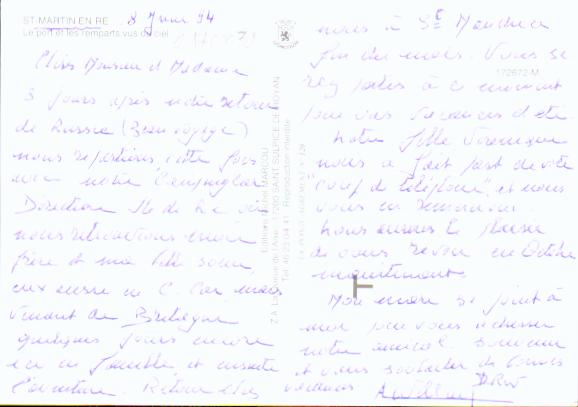 ST-MARTIN EN RE 8 94
Le port et les remparts vus du ciel
Chers Monsieur et Madame
3 jours après notre retour
de Russie (Beau voyage)
nous repartions cette fois
avec notre Camping Car
Direction Ile de Ré où
nous retrouvons mon
frère et ma belle soeur
eux aussi en C. Car mais
venant de Bretagne
quelques jours encore
ici en famille, et ensuite
l'aventure. Retour chez
nous à Ste
fin du mois. Vous se
à ce moment
pour vos vacances d'été
Notre fille Véronique
nous a fait part de votre
coup de téléphone, et nous
vous en
Nous aurons le plaisir
de vous revoir en Octobre
maintenant
Mon se joint à
moi pour vous adresser
notre amical souvenir
et vous souhaiter de bonnes
vacances
172672-M
Tél. 46 23 04 41 Reproduction interdite